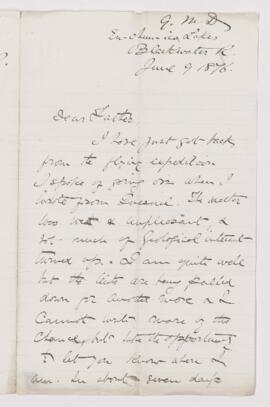 G. M. D
Blackwater R.
June 9 1876.
Dear Father
I have just got back
from the flying expedition
I spoke of going on when I
wrote from Quesnel. The weather
was wet & unpleasant, &
not much of Geological interest
turned up. I am quite well
but the tents are being pulled
down for another move & I
cannot write more by the
chance, but take the opportunity
to let you know where I
am. In about seven days